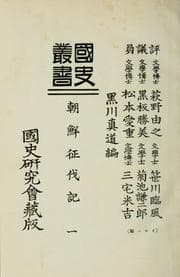 評議員
文學博士 萩野由之
文學士 笹川臨風
文學博士 黒板勝美
文學士 菊池謙二郎
文學士 松本愛重
文學博士 三宅米吉
黒川真道編
國史叢書
朝鮮征伐記 一
國史研究會藏版